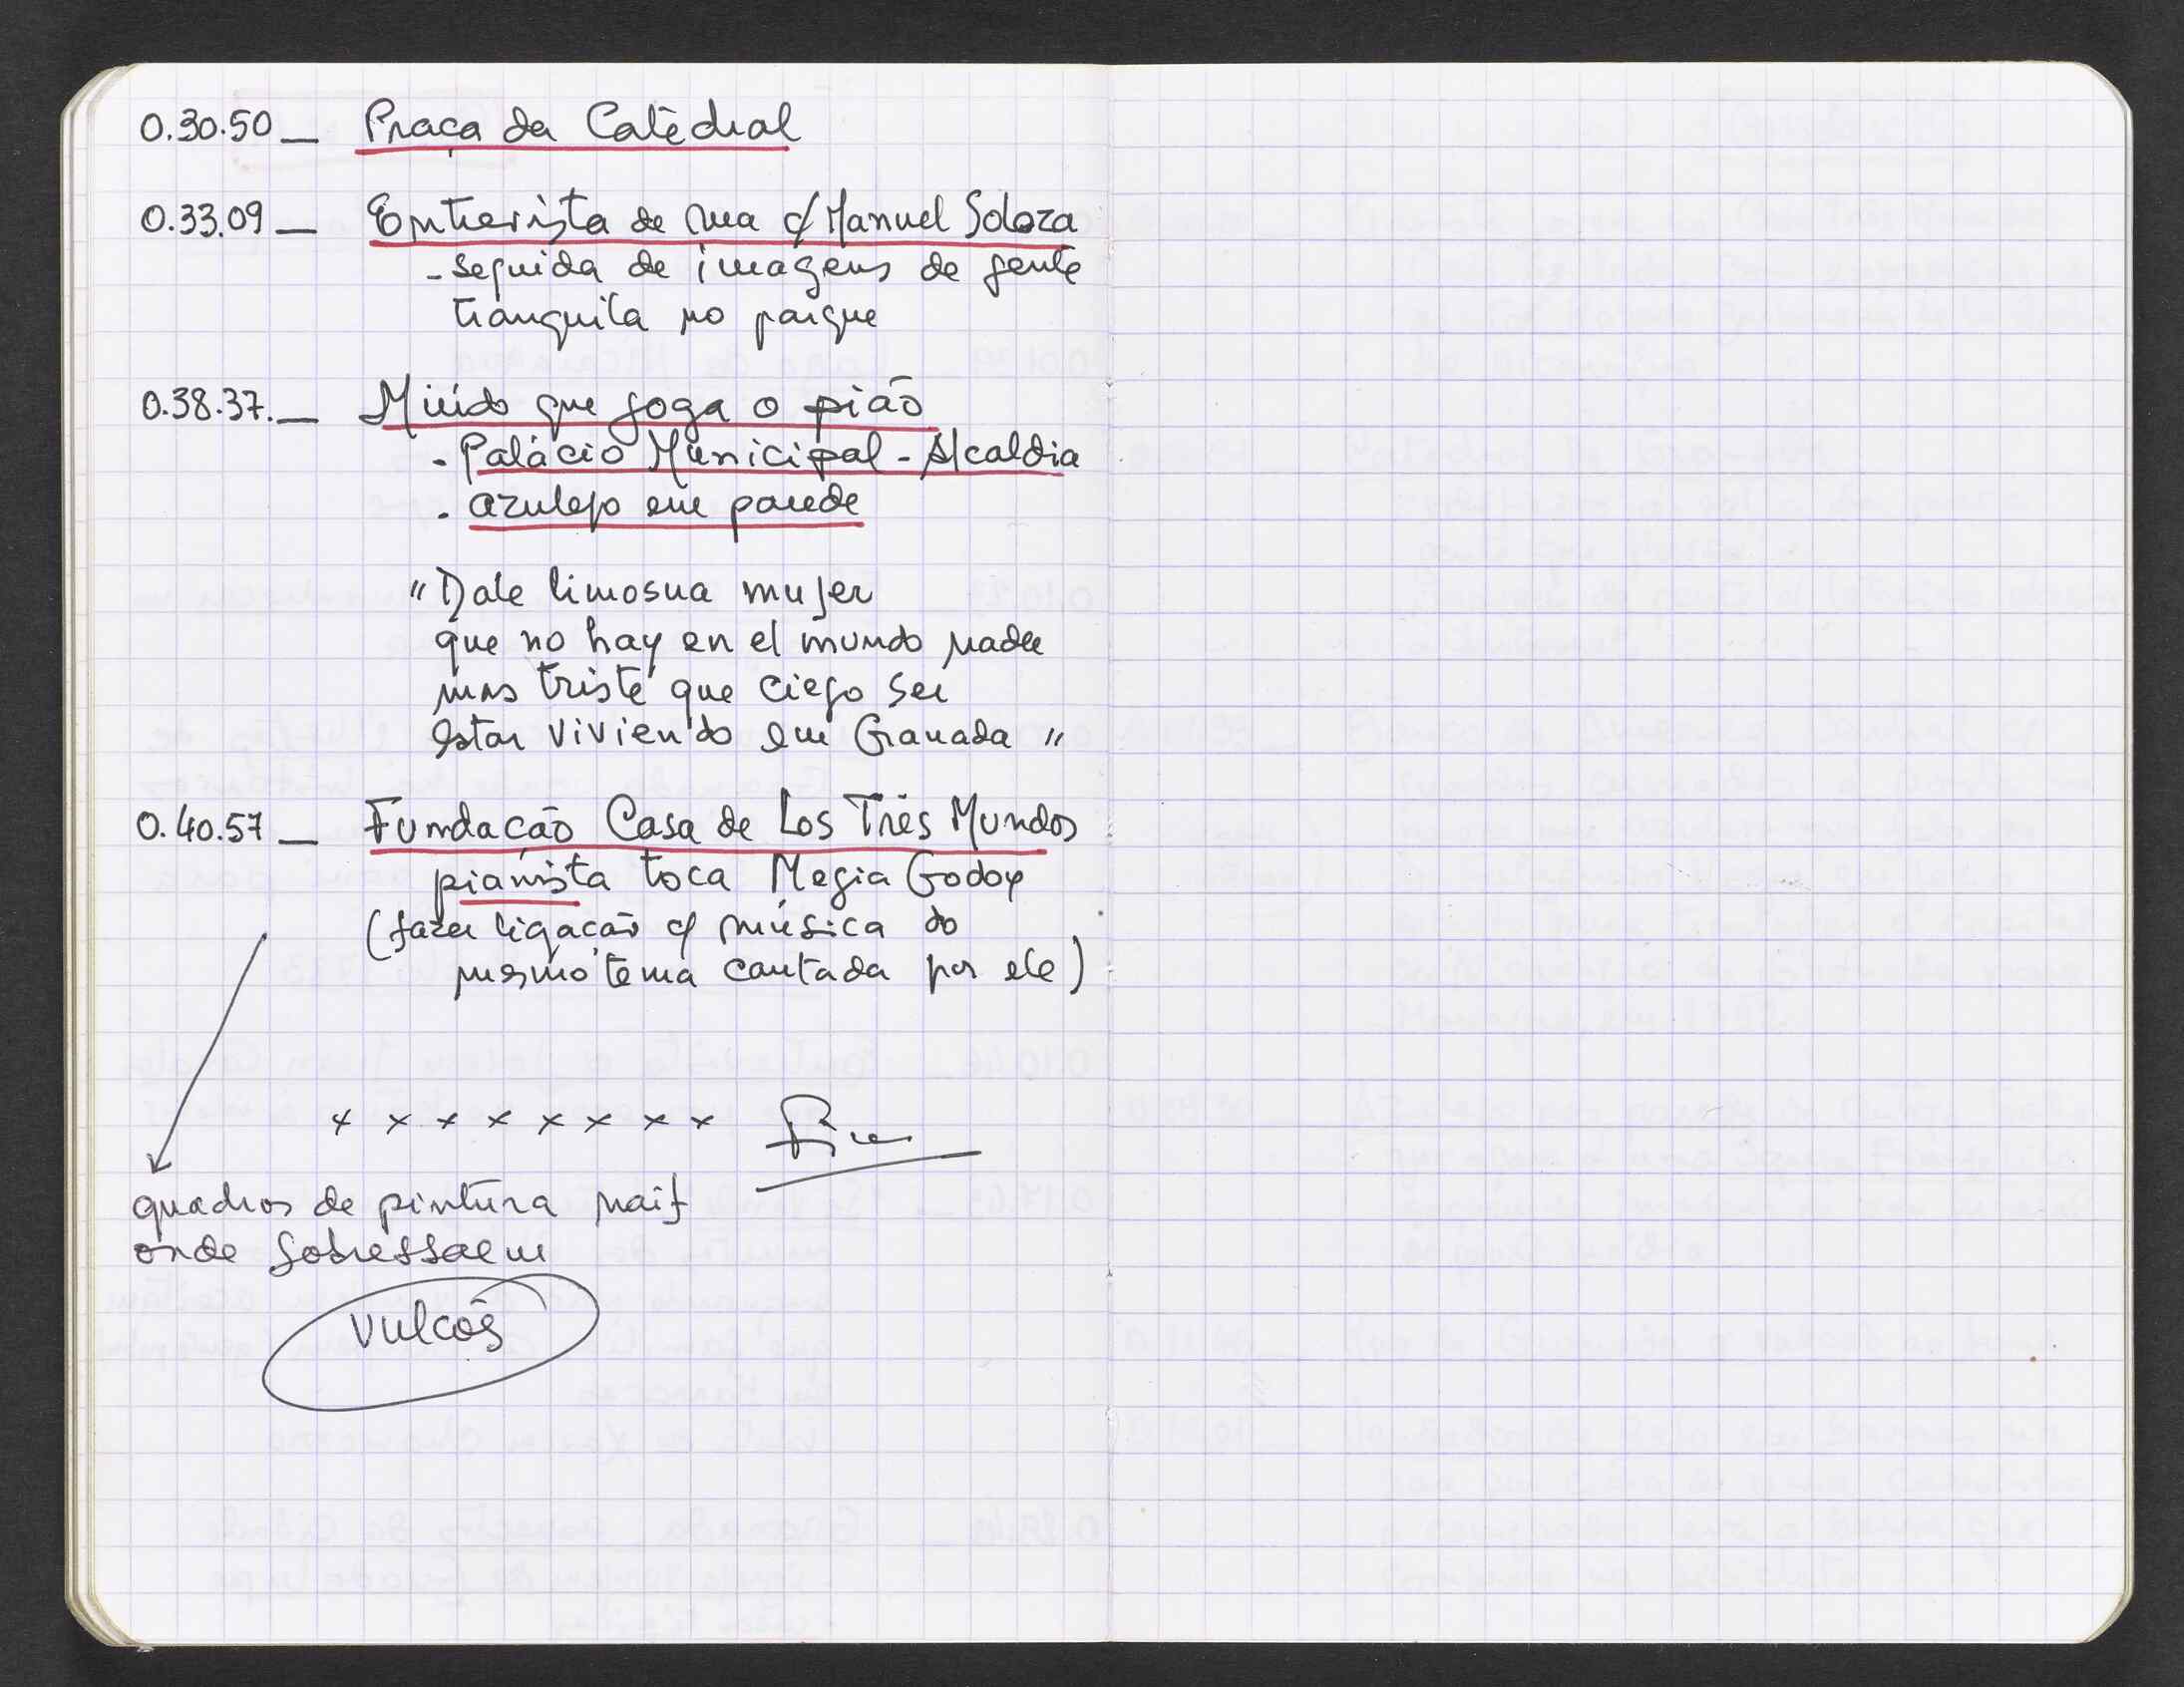 0.30.50 _ Praça da Catedral
0.33.09 _ Entrevista de rua c/ Manuel Soloza
- seguida de imagens de gente
tranquila no parque
0.38.37. _ Miúdo que joga o pião
. Palácio Municipal - Alcaldia
. azulejo em parede
"Dale limosna mujer
que no hay en el mundo nada
mas triste que ciego ser
estar viviendo em Granada"
0.40.57 _ Fundação Casa de Los Três Mundos
pianista toca Megia Godoy
(fazer ligação c/ música do
mesmo tema cantada por ele)
x x x x x x x x Fim
quadros de pintura naif
onde sobressaem
vulcões